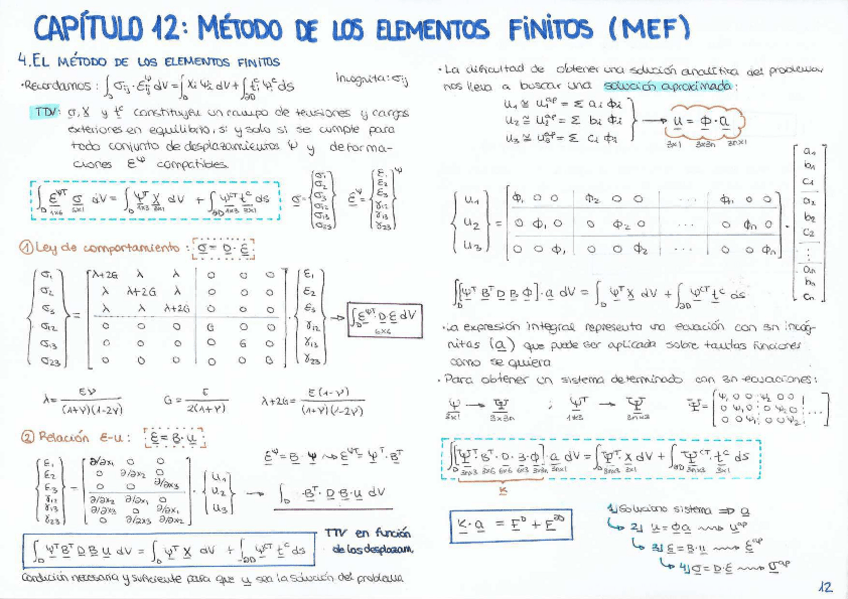 CAPÍTULO 12: MÉTODO DE LOS ELEMENTOS FINITOS (MEF)
4. EL MÉTODO DE LOS ELEMENTOS FINITOS
·Recordamos: ∫_D σij · εij^ψ dV = ∫_D Xi ψi dV + ∫_∂D ti^c ψi^c ds Incognita: σij
TDV: σ, X y t^c constituyen un campo de tensiones y cargas
exteriores en equilibrio, si y solo si se cumple para
todo conjunto de desplazamientos ψ y deforma-
ciones ε^ψ compatibles.
∫_D ε^ψT σ dV = ∫_D ψ^T X dV + ∫_∂D ψ^cT t^c ds
1x6 6x1 1x3 3x1 1x3 3x1
σ = {σ1 σ2 σ3 σ12 σ13 σ23} ε^ψ = {ε1 ε2 ε3 γ12 γ13 γ23}^ψ
① Ley de comportamiento: σ = D · ε
σ1 λ+2G λ λ 0 0 0 ε1
σ2 λ λ+2G λ 0 0 0 ε2
σ3 λ λ λ+2G 0 0 0 ε3
σ12 = 0 0 0 G 0 0 · γ12 → ∫_D ε^ψT · D ε dV
σ13 0 0 0 0 G 0 γ13 6x6
σ23 0 0 0 0 0 G γ23
λ = Eν / (1+ν)(1-2ν) G = E / 2(1+ν) λ+2G = E(1-ν) / (1+ν)(1-2ν)
② Relación ε-u: ε = B · u
ε1 ∂/∂x1 0 0
ε2 0 ∂/∂x2 0 u1
ε3 = 0 0 ∂/∂x3 · u2
γ12 ∂/∂x2 ∂/∂x1 0 u3
γ13 ∂/∂x3 0 ∂/∂x1
γ23 0 ∂/∂x3 ∂/∂x2
ε^ψ = B · ψ ⇝ ε^ψT = ψ^T · B^T
→ ∫_D B^T · D B u dV
∫_D ψ^T B^T D B u dV = ∫_D ψ^T X dV + ∫_∂D ψ^cT t^c ds
TTV en función
de los desplazam.
Condición necesaria y suficiente para que u sea la solución del problema
· La dificultad de obtener una solución analítica del problema
nos lleva a buscar una solución aproximada:
u1 ≅ u1^ap = Σ ai Φi
u2 ≅ u2^ap = Σ bi Φi → u = Φ · a
u3 ≅ u3^ap = Σ ci Φi 3x1 3x3n 3nx1
u1 Φ1 0 0 Φ2 0 0 ... Φn 0 0
u2 = 0 Φ1 0 0 Φ2 0 ... 0 Φn 0
u3 0 0 Φ1 0 0 Φ2 ... 0 0 Φn
a1
b1
c1
a2
b2
c2
⋮
an
bn
cn
∫_D [ψ^T B^T D B Φ] · a dV = ∫_D ψ^T X dV + ∫_∂D ψ^cT t^c ds
· La expresión integral representa una ecuación con 3n incóg-
nitas (a) que puede ser aplicada sobre tantas funciones
como se quiera
· Para obtener un sistema determinado con 3n ecuaciones:
ψ → Ψ ; ψ^T → Ψ^T Ψ = [ψ1 0 0 ψ2 0 0 / 0 ψ1 0 0 ψ2 0 / 0 0 ψ1 0 0 ψ2 ...]
3x1 3x3n 1x3 3nx3
∫_D [Ψ^T B^T · D · B · Φ] · a dV = ∫_D Ψ^T · X dV + ∫_∂D Ψ^cT · t^c ds
3nx3 3x6 6x6 6x3 3x3n 3nx1 3nx3 3x1 3nx3 3x1
K
K · a = F^D + F^∂D
1) Soluciono sistema ⇒ a
2) u = Φa ⇝ u^ap
3) ε = B · u ⇝ ε^ap
4) σ = D · ε ⇝ σ^ap
12